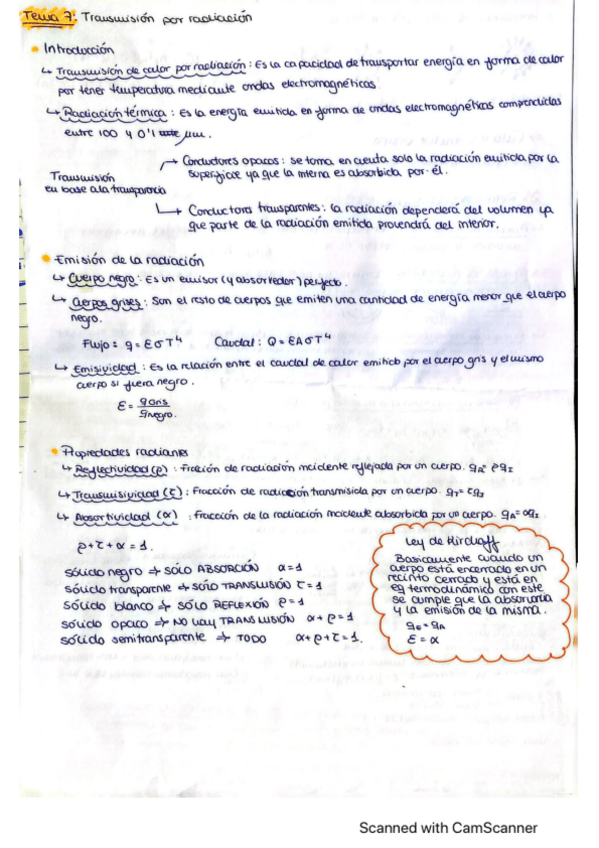 Tema 7: Transmisión por radiación
Introducción
↳ Transmisión de calor por radiación: Es la capacidad de transportar energía en forma de calor
por tener temperatura mediante ondas electromagnéticas.
↳ Radiación térmica: Es la energía emitida en forma de ondas electromagnéticas comprendidas
entre 100 y 0'1 μm.
Transmisión
en base a la transparencia
→ Conductores opacos: se toma en cuenta solo la radiación emitida por la
superficie ya que la interna es absorbida por él.
→ Conductores transparentes: la radiación dependerá del volumen ya
que parte de la radiación emitida provendrá del interior.
Emisión de la radiación
↳ Cuerpo negro: Es un emisor (y absorbedor) perfecto.
↳ Cuerpos grises: Son el resto de cuerpos que emiten una cantidad de energía menor que el cuerpo
negro.
Flujo: q = εσT⁴ Caudal: Q = εAσT⁴
↳ Emisividad: Es la relación entre el caudal de calor emitido por el cuerpo gris y el mismo
cuerpo si fuera negro.
ε = q gris / q negro.
Propiedades radiantes
↳ Reflectividad (ρ): Fracción de radiación incidente reflejada por un cuerpo. q_R = ρq_I
↳ Transmisividad (τ): Fracción de radiación transmisida por un cuerpo. q_T = τq_I
↳ Absortividad (α): Fracción de la radiación incidente absorbida por un cuerpo. q_A = αq_I
ρ + τ + α = 1.
sólido negro → SÓLO ABSORCIÓN α = 1
sólido transparente → SÓLO TRANSMISIÓN τ = 1
sólido blanco → SÓLO REFLEXIÓN ρ = 1
sólido opaco → NO HAY TRANSMISIÓN α + ρ = 1
sólido semitransparente → TODO α + ρ + τ = 1.
Ley de Kirchoff
Basicamente cuando un
cuerpo está encerrado en un
recinto cerrado y está en
eq termodinámico con este
se cumple que la
y la emisión de la misma.
q_e = q_A
ε = α
Scanned with CamScanner